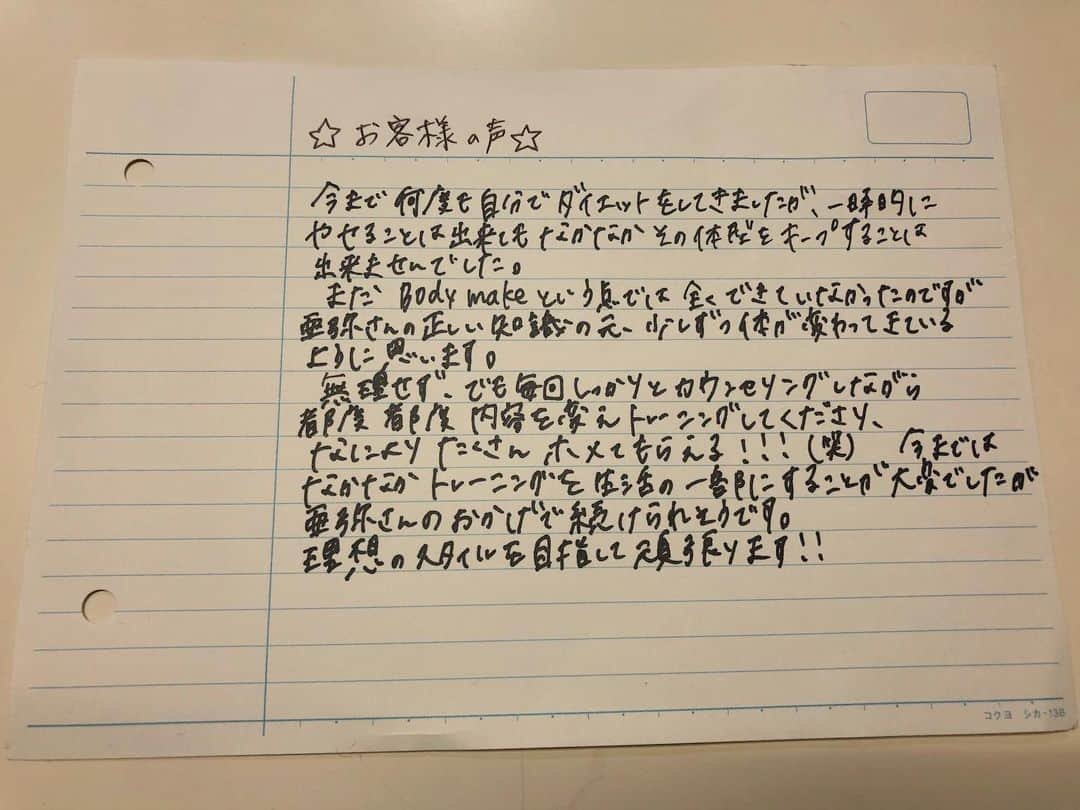 ☆お客様の声☆
今まで何度も自分でダイエットをしてきましたが、一時的に
やせることは出来てもなかなかその体型をキープすることは
出来ませんでした。
まだBody makeという点では全くできていなかったのですが
亜弥さんの正しい知識の元、少しずつ体が変わってきている
ように思います。
無理せず、でも毎回しっかりとカウンセリングしながら
都度都度内容を変えトレーニングしてくださり、
なによりたくさんホメてもらえる!!!(笑) 今までは
なかなかトレーニングを生活の一部にすることが大変でしたが
亜弥さんのおかげで続けられそうです。
理想のスタイルを目指して頑張ります!!
コクヨ シカ-13B